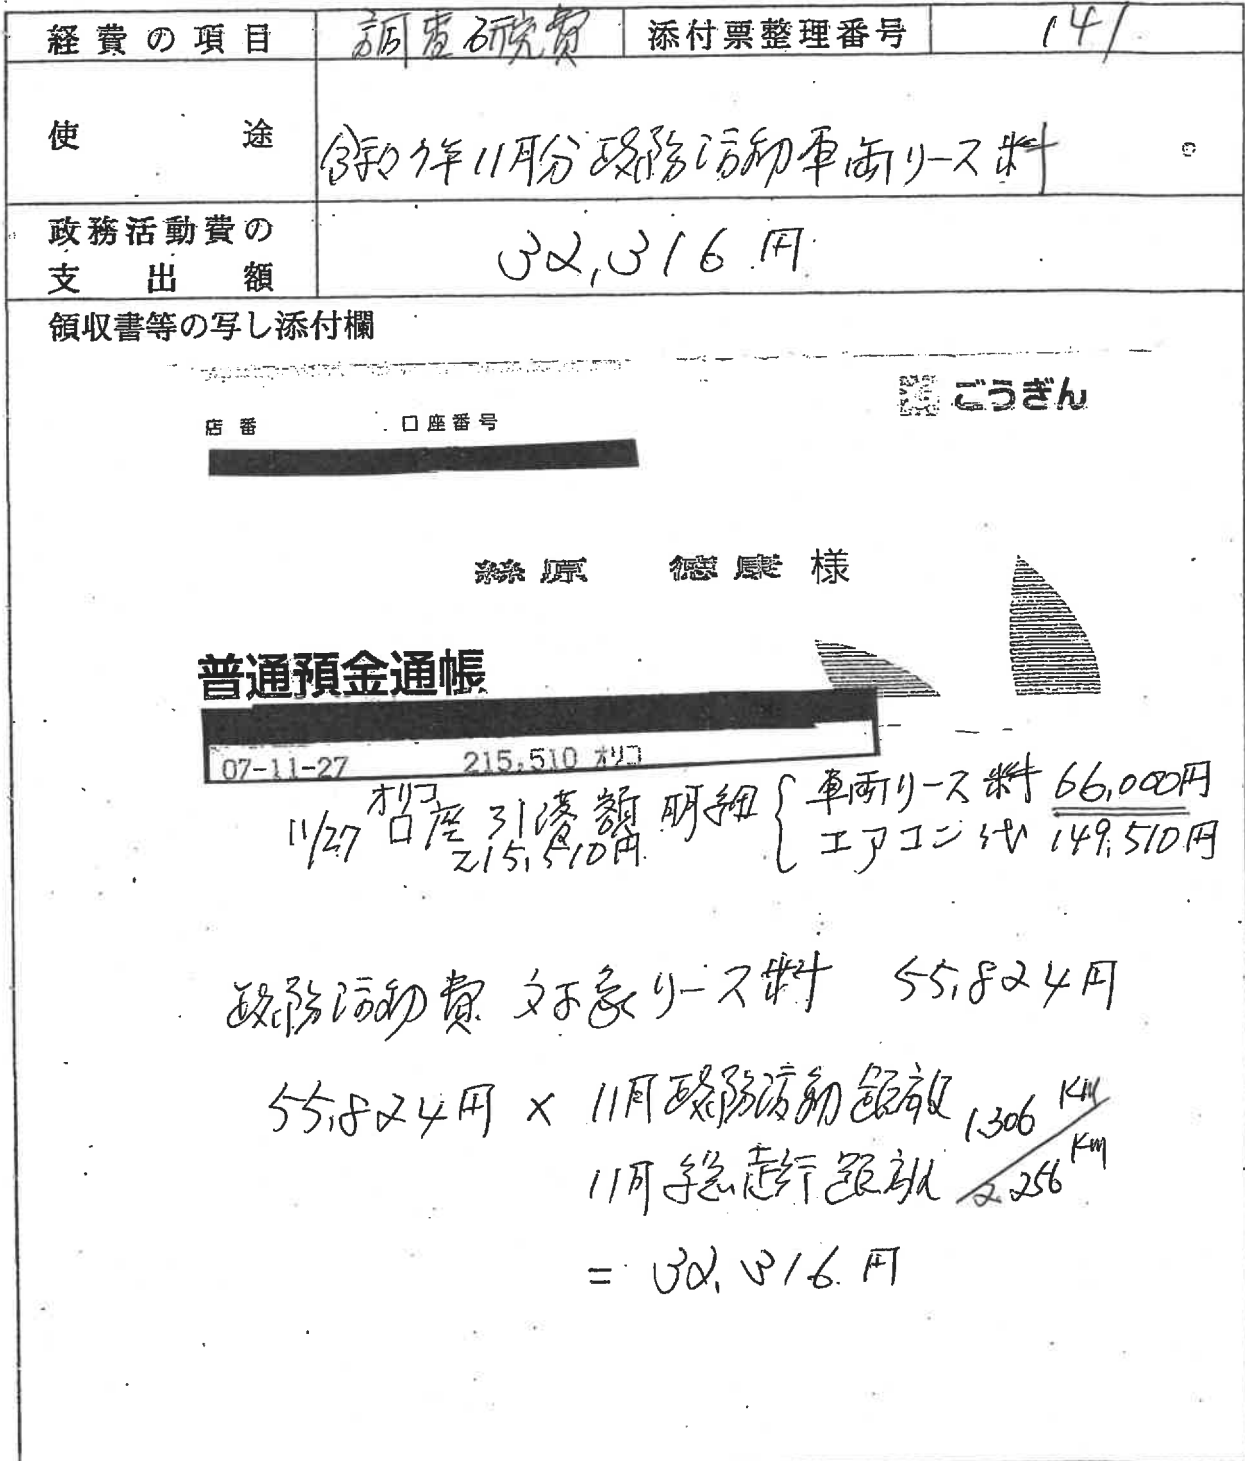 経費の項目 調査研究費 添付票整理番号 141
使途 令和7年11月分政務活動車両リース料
政務活動費の支出額 32,316円
領収書等の写し添付欄
ごうぎん
店番 口座番号
絲原 德康 様
普通預金通帳
07-11-27 215,510 オリコ
11/27 オリコ口座引落額 215,510円 明細 { 車両リース料 66,000円
エアコン代 149,510円
政務活動費対象リース料 55,824円
55,824円 × 11月政務活動距離 1,306Km
11月総走行距離 2,256Km
= 32,316円